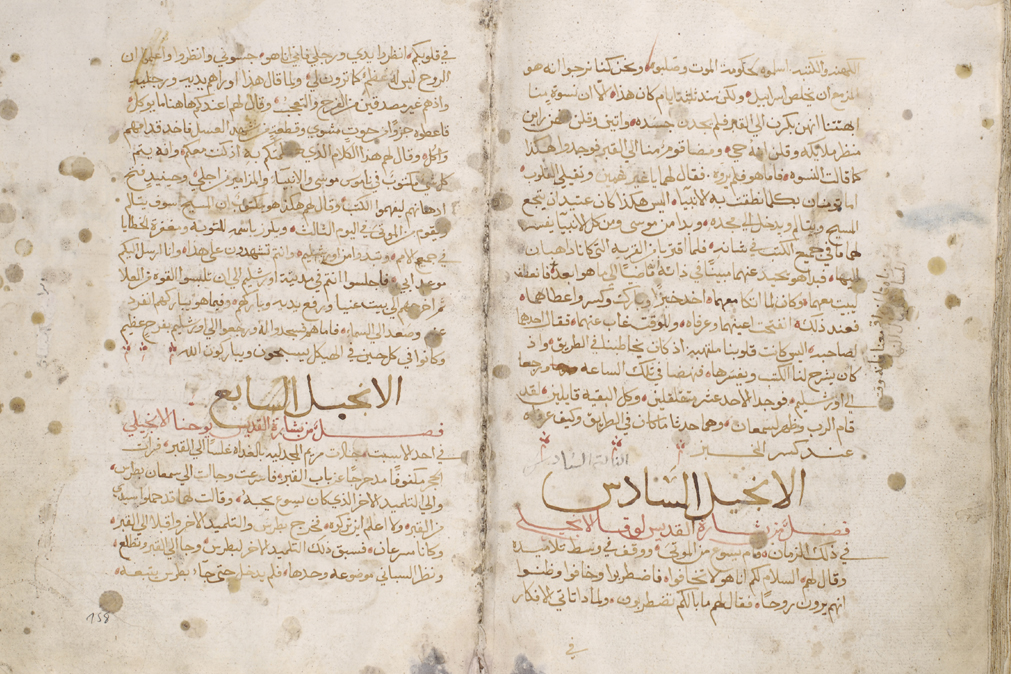 الكهنه والكتبه اسلموه بحكومة الموت وصلبوه ونحن كنا نرجوا انه هو
المزمع ان يخلص اسراييل ولكن منذ ثلثة ايام كان هذا لا ان نسوة منا
اهتتنا انهن بكرن الى القبر فلم يجدن جسده واتين وقلن انهن راين
منظر ملايكه وقلن انه حي ومضا قوم منا الى القبر فوجدوا هكذا
كما قالت النسوه فاما هو فلم يروه فقال لهما يا غير فهمين وثقيلي القلوب
اما تومنان بكلما نطقت به الانبياء اليس هكذا كان عتيد ان يتجع
المسيح ويتالم ويدخل الى مجده وبدا من موسى ومن كل الانبياء يفسر
لهما ما في جميع الكتب في شانه فلما قربا من القرية التي كانا ذاهبان
اليها فبدا هو يحيد عنهما مبينا في ذاته ماضيا الى ما هو ابعد
ليبت معهما وكان لما اتكا معهما اخذ خبزا وبارك وكسر واعطاهما
فعند ذلك انفتحت اعينهما وعرفاه وللوقت غاب عنهما فقال احدهما
لصاحبه اليس كانت قلوبنا ملتهبه اذ كان يخاطبنا في الطريق واذ
كان يشرح لنا الكتب ويفسرها فنهضا في تلك الساعه ورجعا
الى اورشليم فوجدا الاحد عشر مختلفين وكل البقيه قايلين لقد
قام الرب وظهر لسمعان وهما حدثا ما كان في الطريق وكيف عرفاه
عند كسر الخبز
الانجيل السادس
فصل من بشارة القديس لوقا الانجيلي
في ذلك الزمان قام يسوع من الموتى ووقف في وسط تلاميذه
وقال لهم السلام لكم انا هو لا تخافوا فاضطربوا وخافوا وظنوا
انهم يرون روحا فقال لهم ما بالكم تضطربون ولماذا تاتي الافكار
في
في قلوبكم انظروا يدي ورجلي فاني انا هو جسوني وانظروا واعلموا ان
الروح ليس له كما ترون لي ولما قال هذا اوراهم يديه ورجليه
واذ هم غير مصدقين من الفرح والتعجب وقال لهم اعندكم هاهنا ما يوكل
فاعطوه جزوا من حوت مشوي وقطعة من شهد العسل فاخذ قدامهم
واكل وقال لهم هذا الكلام الذي كلمتكم به اذ كنت معكم وانه يتم
كلما هو مكتوب في ناموس موسى والانبياء والمزامير من اجلي وحينيذ فتح
اذهانهم ليفهموا الكتب وقال لهم هكذا هو مكتوب ان المسيح سوف يتالم
ويقوم من الموتى في اليوم الثالث ويكرز باسمه بالتوبه ومغفرة الخطايا
في جميع الامم وتبتدوا من اورشليم وانتم تشهدون على هذا وانا ارسل اليكم
موعد ابي فاجلسوا انتم في مدينة اورشليم الى ان تلبسوا القوة من العلا
ثم اخرجهم الى بيت عنيا ورفع يديه وباركهم وفيما هو يباركهم انفرد
عنهم وصعد الى السماء فاما هم فسجدوا له ورجعوا الى اورشليم بفرح عظيم
وكانوا في كل حين في الهيكل يسبحون ويباركون الله
الانجيل السابع
فصل من بشارة القديس يوحنا الانجيلي
في احد السبت جات مريم المجدليه بالغداه غلسا الى القبر فرات
الحجر ملفوفا مدحرجا عن باب القبر فاسرعت وجات الى سمعان بطرس
والى التلميذ الاخر الذي كان يسوع يحبه وقالت لهما قد حملوا سيدي
من القبر ولا اعلم اين تركوه فخرج بطرس والتلميذ الاخر واقبلا الى القبر
وكانا يسرعان فسبق ذلك التلميذ الاخر لبطرس وجا الى القبر وتطلع
ونظر السباني موضوعه وحدها فلم يدخل حتى جاء بطرس يتبعه
158